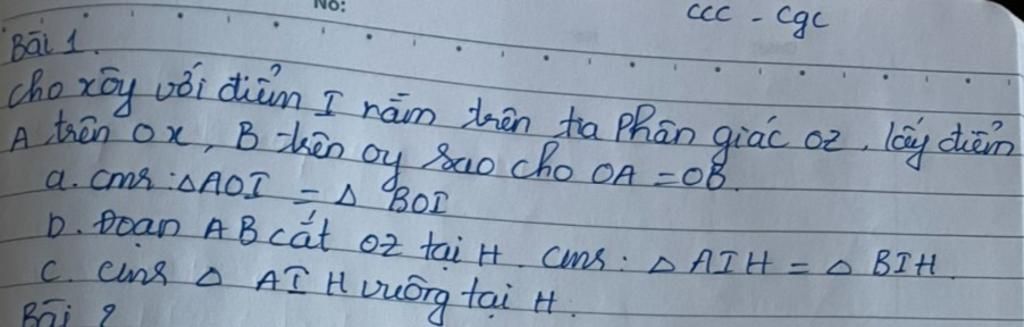 No:
ccc - cgc
Bài 1.
cho xôy với điểm I nằm trên tia phân giác oz. lấy điểm
A trên Ox, B trên oy sao cho OA = OB.
a. cmr: △AOI = △ BOI
b. Đoạn AB cắt oz tại H. cmr: △ AIH = △ BIH.
c. cmr △ AIH vuông tại H.
Bài 2